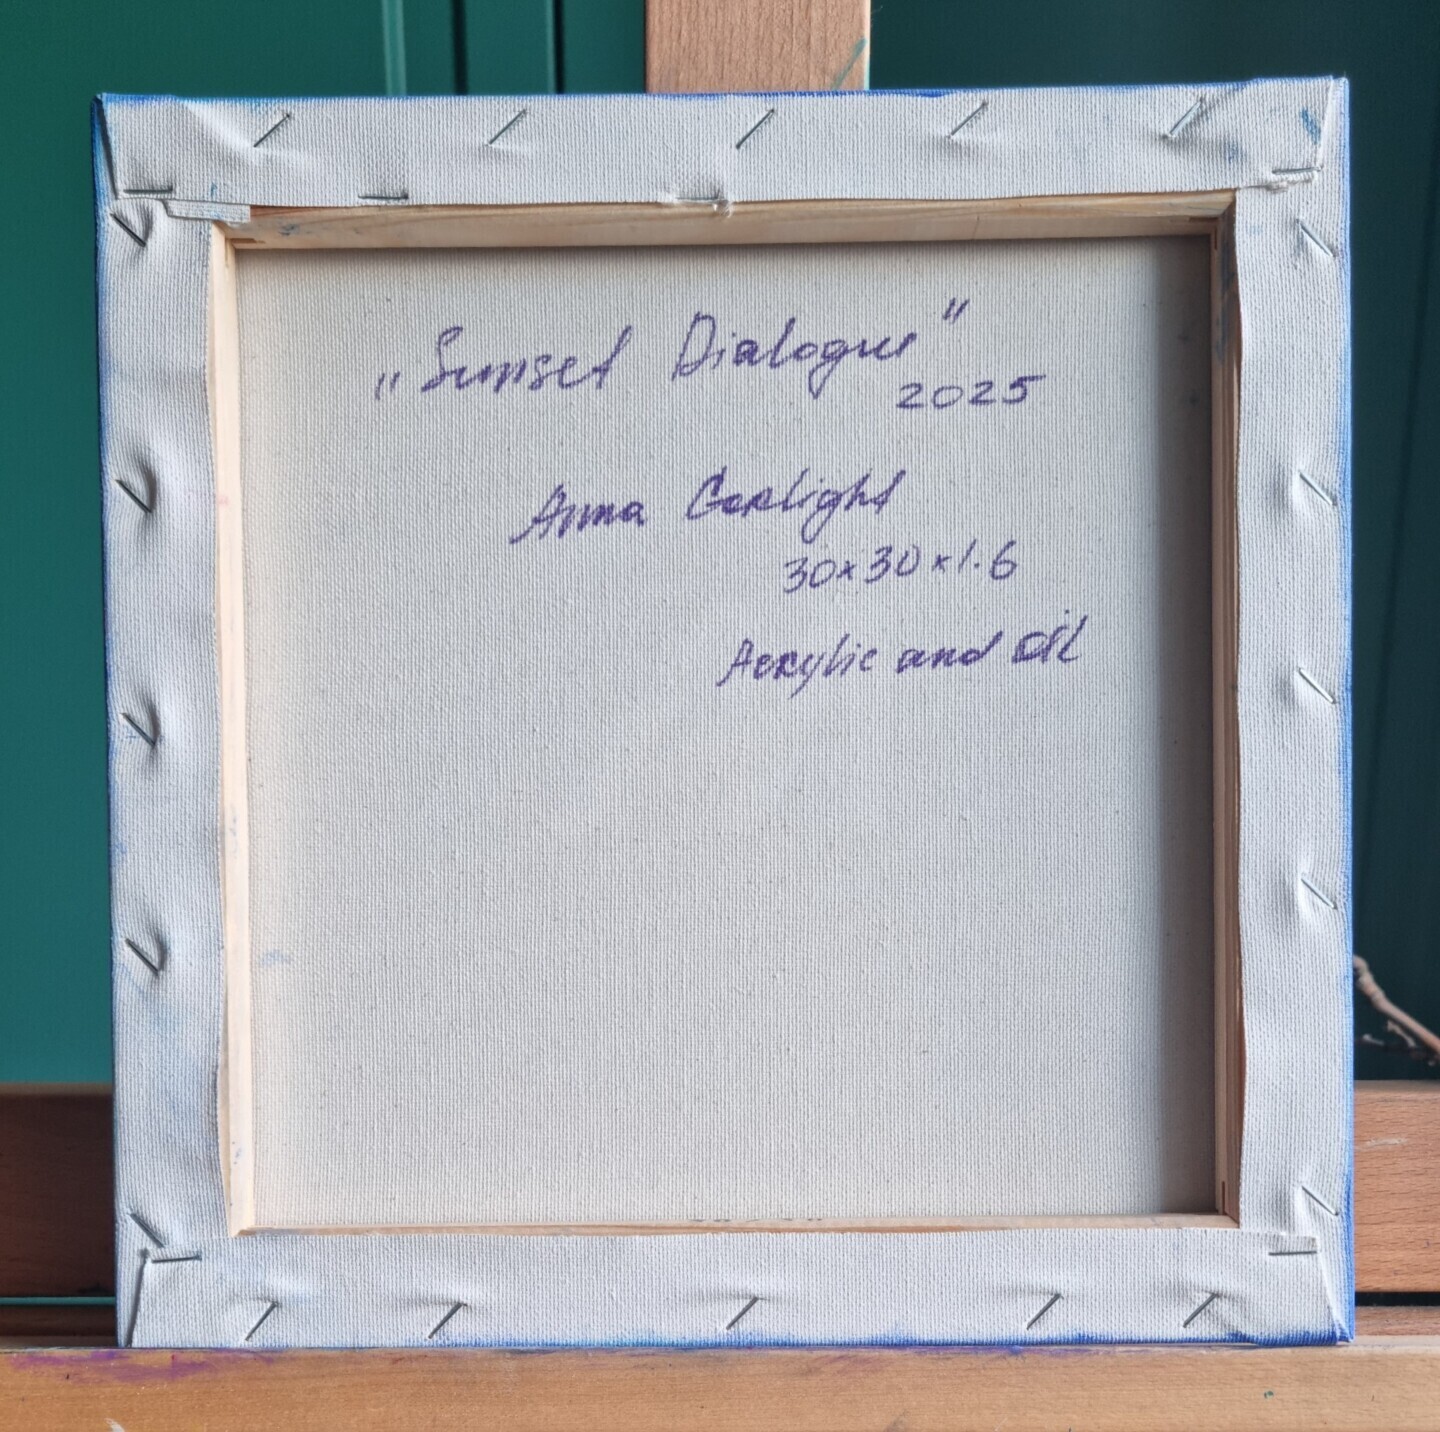 „Sunset Dialogue"
2025
Anna Gorlight
30×30×1.6
Acrylic and Oil